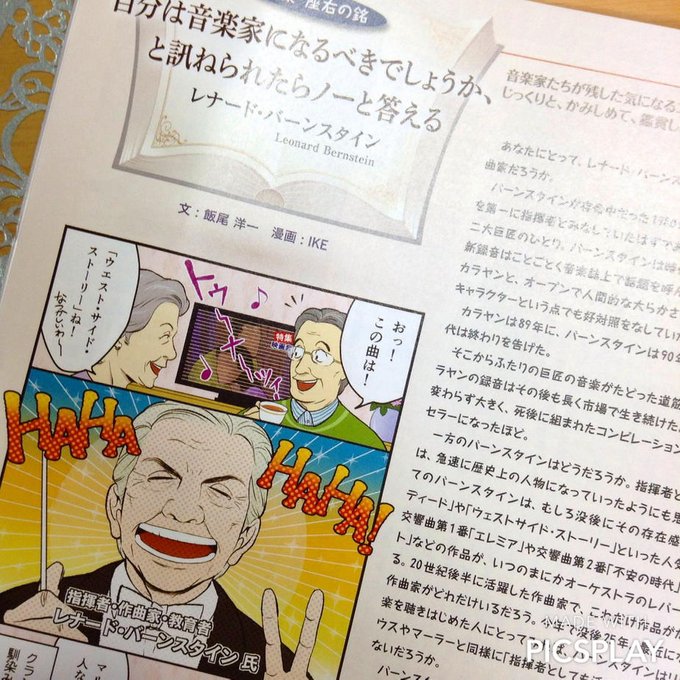 座右の銘
自分は音楽家になるべきでしょうか、
と訊ねられたらノーと答える
レナード・バーンスタイン
Leonard Bernstein
文：飯尾 洋一　漫画：IKE
おっ！
この曲は！
トゥ
ナ
イ
特集
映画
「ウエスト・サイド・
ストーリー」ね！
なつかしいわ〜
HAHA
HAHA!
指揮者・作曲家・教育者
レナード・バーンスタイン 氏
音楽家たちが残した気になる
じっくりと、かみしめて、鑑賞し
あなたにとって、レナード・バーンス
曲家だろうか。
バーンスタインが存命中だった
を第一に指揮者とみなしていたはず
二大巨匠のひとり。バーンスタインは
新録音はことごとく音楽誌上で話題を呼ん
カラヤンと、オープンで人間的な大らかさ
キャラクターという点でも好対照をなしてい
カラヤンは89年に、バーンスタインは90年
代は終わりを告げた。
そこからふたりの巨匠の音楽がたどった道筋
ラヤンの録音はその後も長く市場で生き続けた
変わらず大きく、死後に組まれたコンピレーション
セラーになったほど。
一方のバーンスタインはどうだろうか。指揮者と
は、急速に歴史上の人物になっていったようにも思
てのバーンスタインは、むしろ没後にその存在感
ディード」や「ウエストサイド・ストーリー」といった人気
交響曲第1番「エレミア」や交響曲第2番「不安の時代」
ト」などの作品が、いつのまにかオーケストラのレパー
る。20世紀後半に活躍した作曲家で、これだけ作品が
作曲家がどれだけいるだろう。
楽を聴きはじめた人にとって
没後25年
ウスやマーラーと同様に「指揮者としても
ないだろうか。
MADE WITH
PICSPLAY